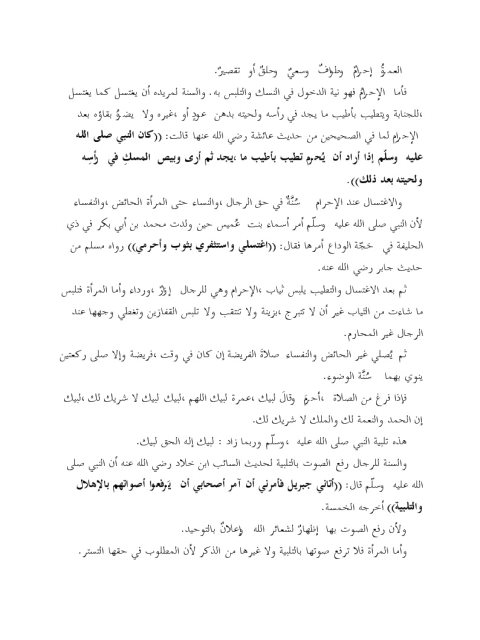 العمرةُ إحرامٌ وطوافٌ وسعيٌ وحلقٌ أو تقصيرٌ.
فأما الإحرامُ فهو نية الدخول في النسك والتلبس به. والسنة لمريده أن يغتسل كما يغتسل
،للجنابة ويتطيب بأطيب ما يجد في رأسه ولحيته بدهن عودٍ أو ،غيره ولا يضرُّ بقاؤه بعد
الإحرام لما في الصحيحين من حديث عائشة رضي الله عنها قالت: ((كان النبي صلى الله
عليه وسلّم إذا أراد أن يُحرم تطيب بأطيب ما ،يجد ثم أرى وبيص المسكِ في رأسِه
ولحيته بعد ذلك)).
والاغتسال عند الإحرام سُنَّةٌ في حق الرجال ،والنساء حتى المرأة الحائض ،والنفساء
لأن النبي صلى الله عليه وسلّم أمر أسماء بنت عُميس حين ولدت محمد بن أبي بكر في ذي
الحليفة في حَجّة الوداع أمرها فقال: ((اغتسلي واستثفري بثوب وأحرمي)) رواه مسلم من
حديث جابر رضي الله عنه.
ثم بعد الاغتسال والتطيب يلبس ثياب ،الإحرام وهي للرجال إزارٌ ،ورداء وأما المرأة فتلبس
ما شاءت من الثياب غير أن لا تتبرج ،بزينة ولا تنتقب ولا تلبس القفازين وتغطي وجهها عند
الرجال غير المحارم.
ثم يُصلي غير الحائض والنفساء صلاةَ الفريضة إن كان في وقت ،فريضة وإلا صلى ركعتين
ينوي بهما سُنَّة الوضوء.
فإذا فرغ من الصلاة ،أحرمَ وقالَ لبيك ،عمرة لبيك اللهم ،لبيك لبيك لا شريك لك ،لبيك
إن الحمد والنعمة لك والملك لا شريك لك.
هذه تلبية النبي صلى الله عليه ،وسلّم وربما زاد : لبيك إله الحق لبيك.
والسنة للرجال رفع الصوت بالتلبية لحديث السائب ابن خلاد رضي الله عنه أن النبي صلى
الله عليه وسلّم قال: ((أتاني جبريل فأمرني أن آمر أصحابي أن يَرفعوا أصواتهم بالإهلال
والتلبية)) أخرجه الخمسة.
ولأن رفع الصوت بها إظهارٌ لشعائر الله وإعلانٌ بالتوحيد.
وأما المرأة فلا ترفع صوتها بالتلبية ولا غيرها من الذكر لأن المطلوب في حقها التستر.